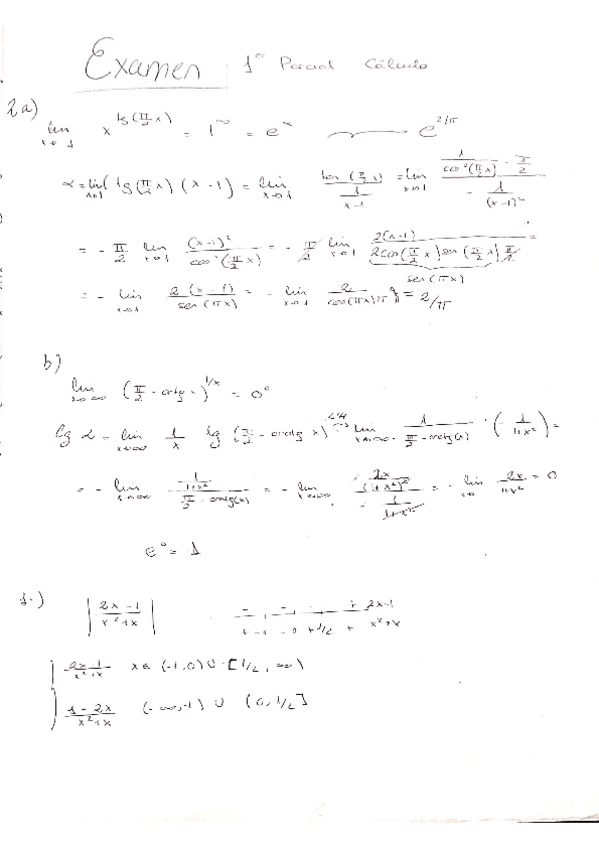 Examen 1º Parcial Cálculo
2a)
lim x→1 x^(tg(π/2 x)) = 1^∞ = e^α → e^(2/π)
α = lim x→1 tg(π/2 x) (x - 1) = lim x→1 tan(π/2 x) / (1/(x-1)) = lim x→1 (1/cos²(π/2 x) · π/2) / (- 1/(x-1)²)
= - π/2 lim x→1 (x-1)² / cos²(π/2 x) = - π/2 lim x→1 2(x-1) / (2cos(π/2 x) sen(π/2 x) π/2) =
sen(πx)
= - lim x→1 2(x-1) / sen(πx) = - lim x→1 2 / (cos(πx)π) = 2/π
b)
lim x→∞ (π/2 - artg x)^(1/x) = 0⁰
lg α = lim x→∞ 1/x lg (π/2 - arctg x) = lim x→∞ 1 / (π/2 - arctg(x)) · (- 1/(1+x²)) =
= - lim x→∞ (1/(1+x²)) / (π/2 - arctg(x)) = - lim x→∞ (2x/(1+x²)²) / (- 1/(1+x²)) = - lim 2x/(1+x²) = 0
e⁰ = 1
1.)
| (2x-1)/(x²+x) |
2x-1
x²+x
(2x-1)/(x²+x) x∈ (-1,0) ∪ [1/2, ∞)
(1-2x)/(x²+x) (-∞,-1) ∪ (0, 1/2]